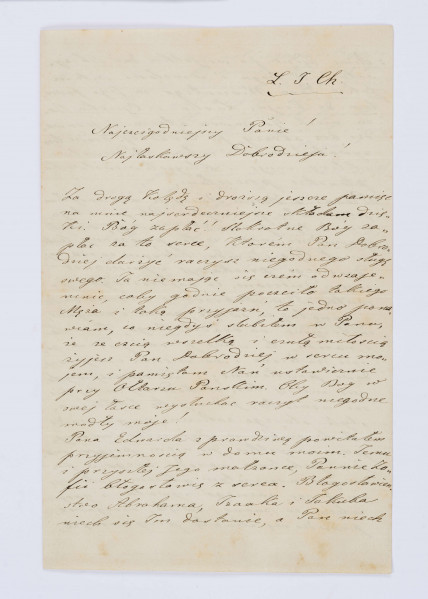 L. J. Ch.
Najczcigodniejszy Panie!
Najłaskawszy Dobrodzieju!
Za drogą kolędę i droższą jeszcze pamięć
na mnie najserdeczniejsze składam dzię-
ki. Bóg zapłać! stokrotne Bóg za-
płać za to serce, którem Pan Dobro-
dziej darzyć raczysz niegodnego sługę
swego. Ja nie mając się czem odwzaje-
mnić, coby godnie uczciło takiego
Męża i taką przyjaźń, to jedno pona-
wiam, co niegdyś ślubiłem w Panu,
że ze czcią wszelką i czułą miłością
żyjesz Pan Dobrodziej w sercu mo-
jem, i pamiętam Nań ustawicznie
przy Ołtarzu Pańskim. Oby Bóg w
swej łasce wysłuchać raczył niegodne
modły moje!
Pana Edwarda z prawdziwą powitałem
przyjemnością w domu moim. Jemu
i przyszłej Jego małżonce, Pannie Zo-
fii błogosławię z serca. Błogosławień-
stwo Abrahama, Izaaka i Jakuba
niech się Im dostanie, a Pan niech